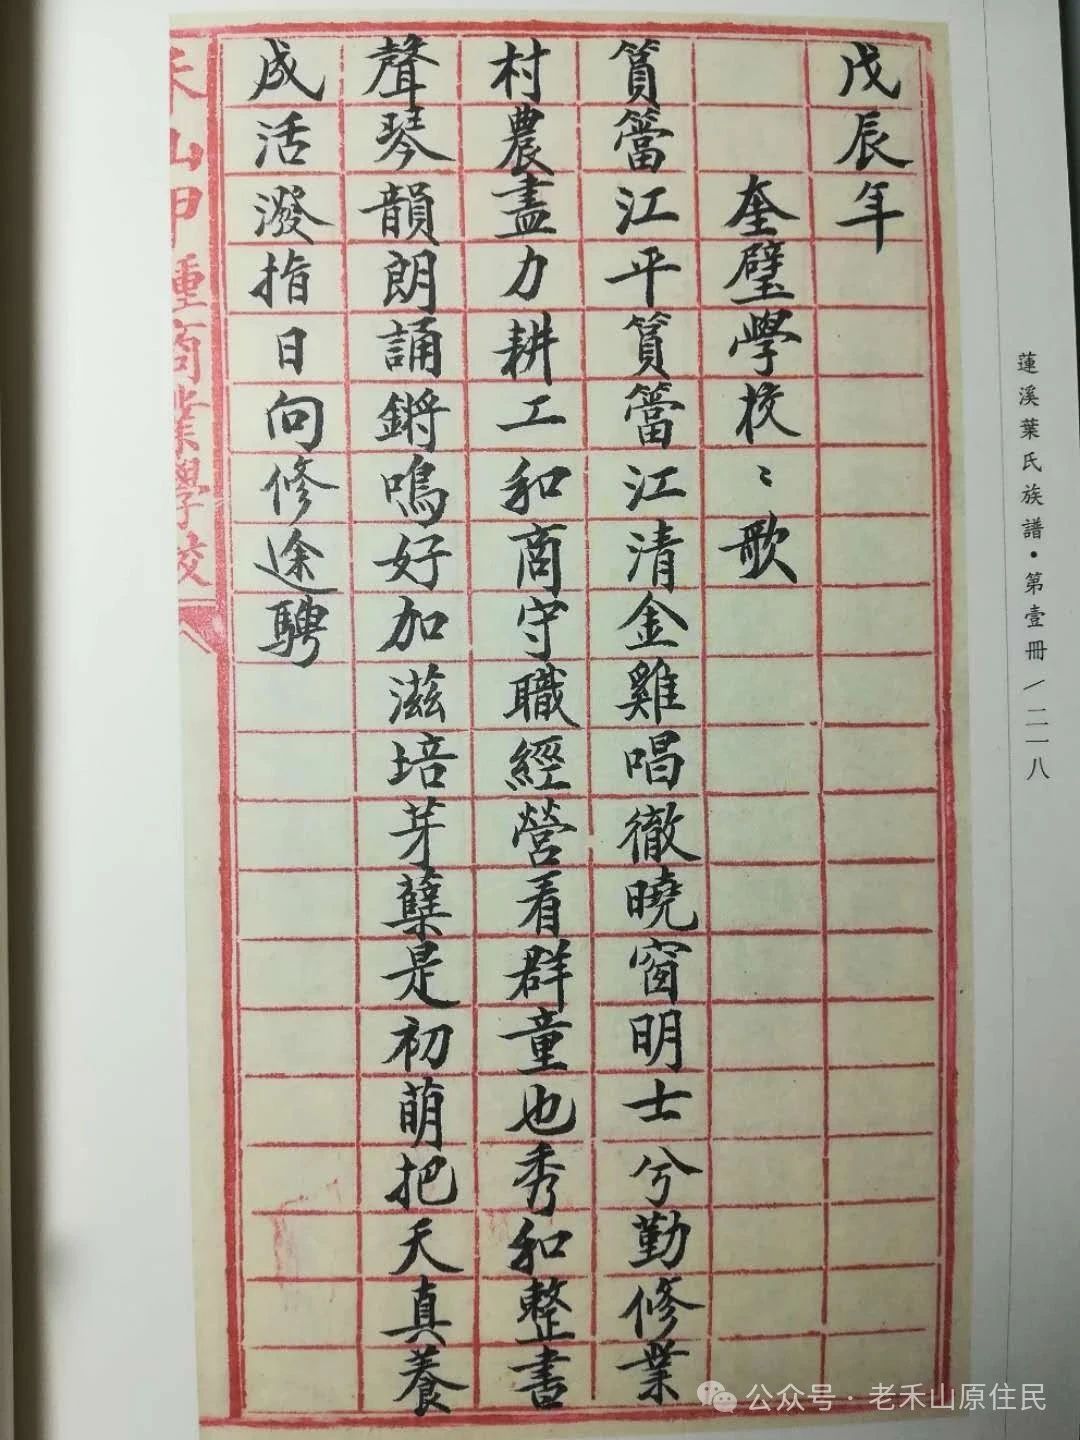 戊辰年
奎璧學校〻歌
篔簹江平篔簹江清金雞唱徹曉窗明士兮勤修業
村農盡力耕工和商守職經營看群童也秀和整書
聲琴韻朗誦鏘鳴好加滋培芽蘖是初萌把天真養
成活潑指日向修途騁
禾山甲種商業學校
蓮溪葉氏族譜·第壹冊/二一八
公众号·老禾山原住民